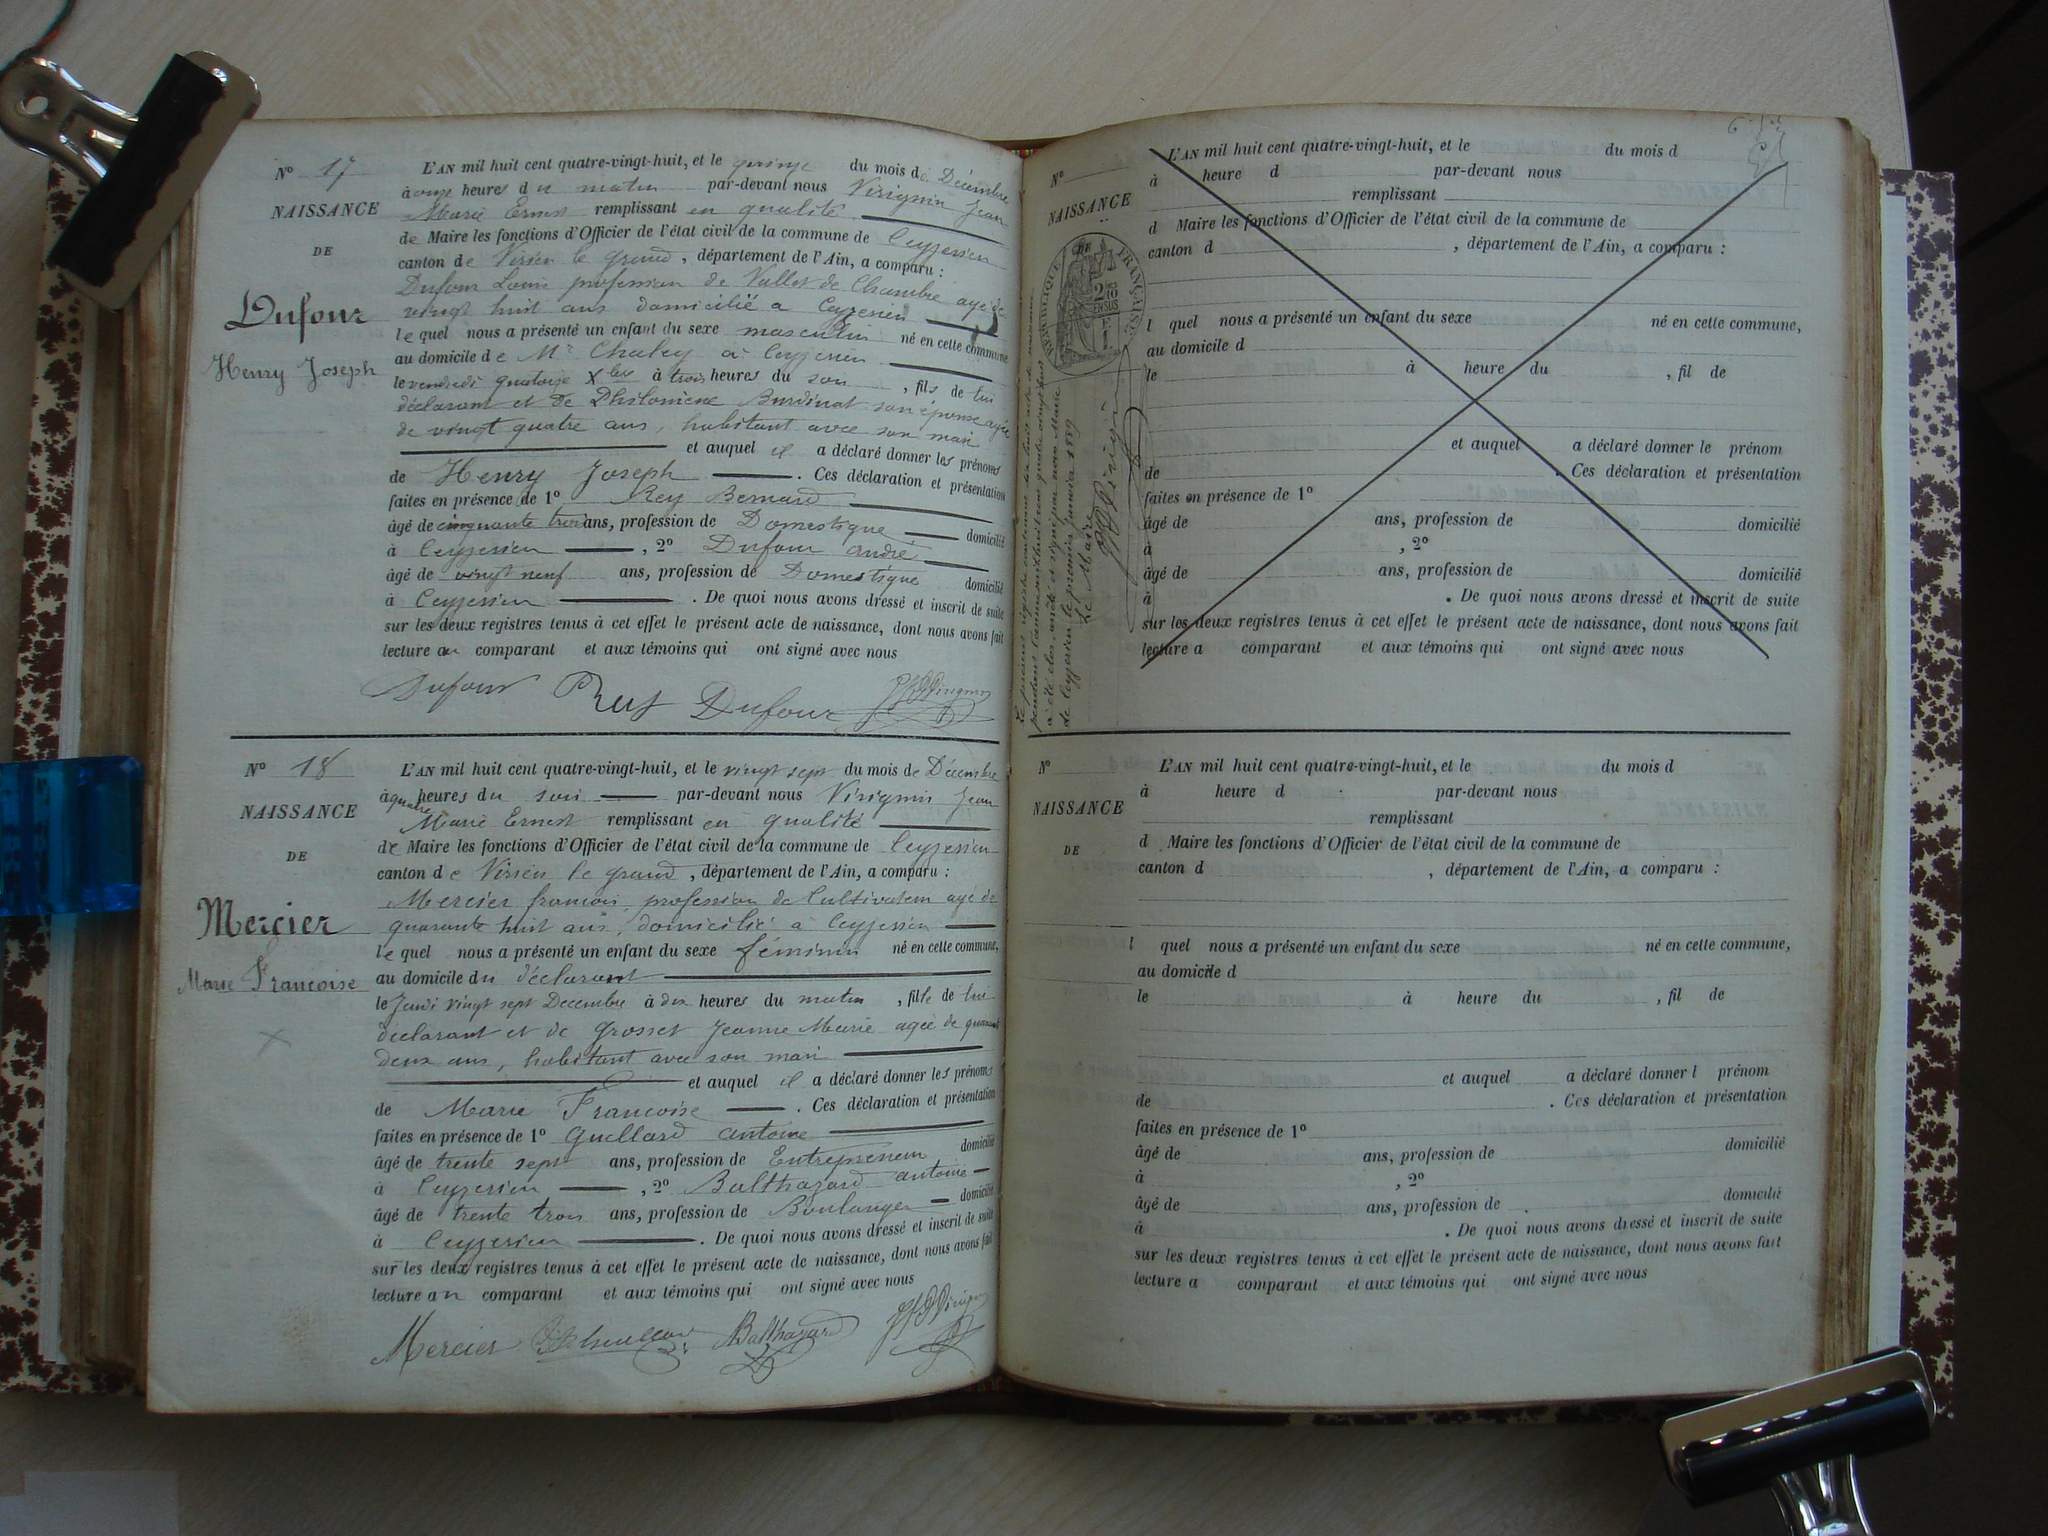 N° 17
NAISSANCE
DE
Dufour
Henry Joseph
L'AN mil huit cent quatre-vingt-huit, et le quinze du mois de Décembre
à onze heures du matin par-devant nous Virignin Jean
Marie Ernest remplissant en qualité
de Maire les fonctions d'Officier de l'état civil de la commune de Ceyzerieu
canton de Virieu le grand, département de l'Ain, a comparu :
Dufour Louis profession de Vallet de Chambre agé de
vingt huit ans domicilié a Ceyzerieu
le quel nous a présenté un enfant du sexe masculin né en cette commune
au domicile de Mr Chaley à Ceyzerieu
le vendredi quatorze Xbre à trois heures du soir, fils de lui
déclarant et de Philomène Burdinat son épouse agée
de vingt quatre ans, habitant avec son mari
et auquel il a déclaré donner les prénoms
de Henry Joseph. Ces déclaration et présentation
faites en présence de 1° Rey Bernard
âgé de cinquante trois ans, profession de Domestique domicilié
à Ceyzerieu, 2° Dufour andré
âgé de vingt neuf ans, profession de Domestique domicilié
à Ceyzerieu. De quoi nous avons dressé et inscrit de suite
sur les deux registres tenus à cet effet le présent acte de naissance, dont nous avons fait
lecture au comparant et aux témoins qui ont signé avec nous
Dufour Rey Dufour Virignin
N° 18
NAISSANCE
DE
Mercier
Marie Francoise
L'AN mil huit cent quatre-vingt-huit, et le vingt sept du mois de Décembre
à quatre heures du soir par-devant nous Virignin Jean
Marie Ernest remplissant en qualité
de Maire les fonctions d'Officier de l'état civil de la commune de Ceyzerieu
canton de Virieu le grand, département de l'Ain, a comparu :
Mercier francois, profession de Cultivateur agé de
quarante huit ans, domicilié a Ceyzerieu
le quel nous a présenté un enfant du sexe féminin né en cette commune,
au domicile du déclarant
le Jeudi vingt sept Decembre à dix heures du matin, fille de lui
déclarant et de Grosset Jeanne Marie agée de quarante
deux ans, habitant avec son mari
et auquel il a déclaré donner les prénoms
de Marie Francoise. Ces déclaration et présentation
faites en présence de 1° antoine
âgé de trente sept ans, profession de Entrepreneur domicilié
à Ceyzerieu, 2° Balthazard antoine
âgé de trente trois ans, profession de Boulanger domicilié
à Ceyzerieu. De quoi nous avons dressé et inscrit de suite
sur les deux registres tenus à cet effet le présent acte de naissance, dont nous avons fait
lecture au comparant et aux témoins qui ont signé avec nous
Mercier Balthazard Virignin
N°
NAISSANCE
L'AN mil huit cent quatre-vingt-huit, et le du mois d
à heure d par-devant nous
remplissant
d Maire les fonctions d'Officier de l'état civil de la commune de
canton d , département de l'Ain, a comparu :
l quel nous a présenté un enfant du sexe né en cette commune,
au domicile d
le à heure du , fil de
et auquel a déclaré donner le prénom
de . Ces déclaration et présentation
faites en présence de 1°
âgé de ans, profession de domicilié
à , 2°
âgé de ans, profession de domicilié
à . De quoi nous avons dressé et inscrit de suite
sur les deux registres tenus à cet effet le présent acte de naissance, dont nous avons fait
lecture a comparant et aux témoins qui ont signé avec nous
RÉPUBLIQUE FRANÇAISE
2/10 EN SUS
1 F
Le présent registre contenant dix huit actes de naissance
pendant l'année mil huit cent quatre vingt huit
a été clos, arrêté et signé par nous Maire
de Ceyzerieu le premier janvier 1889
Le Maire
Virignin
N°
NAISSANCE
DE
L'AN mil huit cent quatre-vingt-huit, et le du mois d
à heure d par-devant nous
remplissant
d Maire les fonctions d'Officier de l'état civil de la commune de
canton d , département de l'Ain, a comparu :
l quel nous a présenté un enfant du sexe né en cette commune,
au domicile d
le à heure du , fil de
et auquel a déclaré donner l prénom
de . Ces déclaration et présentation
faites en présence de 1°
âgé de ans, profession de domicilié
à , 2°
âgé de ans, profession de domicilié
à . De quoi nous avons dressé et inscrit de suite
sur les deux registres tenus à cet effet le présent acte de naissance, dont nous avons fait
lecture a comparant et aux témoins qui ont signé avec nous